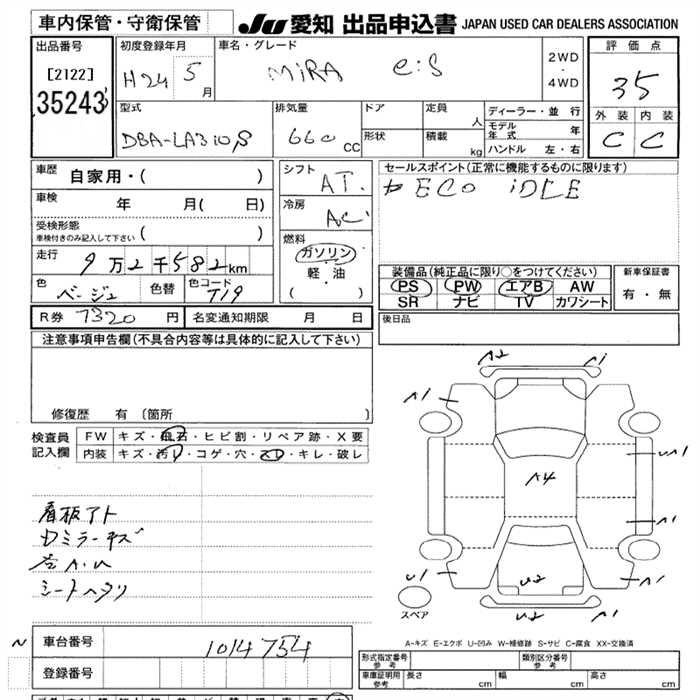 車内保管・守衛保管
JU 愛知 出品申込書 JAPAN USED CAR DEALERS ASSOCIATION
出品番号
[2122]
35243
初度登録年月
H24 5
月
車名・グレード
MiRA e:S
2WD
・
4WD
評価点
35
外装 内装
C C
型式
DBA-LA310S
排気量
660 CC
ドア
形状
定員
人
積載
kg
ディーラー・並行
モデル年式 年
ハンドル 左・右
車歴
自家用・( )
車検 年 月( 日)
受検形態
車検付きのみ記入して下さい ( )
走行
9万2千582km
色
ベージュ
色替
色コード
T19
シフト
AT.
冷房
AC
燃料
ガソリン
軽・油
( ・ )
セールスポイント(正常に機能するものに限ります)
ECO iDLE
装備品(純正品に限り○をつけてください)
PS PW エアB AW
SR ナビ TV カワシート
新車保証書
有・無
R券 7320 円 名変通知期限 月 日
後日品
注意事項申告欄(不具合内容等は具体的に記入して下さい)
修復歴 有 〔箇所 〕
検査員記入欄
FW キズ・飛石・ヒビ割・リペア跡・X要
内装 キズ・汚れ・コゲ・穴・スレ・キレ・破レ
看板アト
Dミラーキズ
シートヘタリ
A2 A1
A1
A4
A1
U1
U2
A1
U2 A1
スペア
A-キズ E-エクボ U-凹み W-補修跡 S-サビ C-腐食 XX-交換済
N
車台番号 1014754
登録番号
形式指定番号
参考
類別区分番号
参考
車庫証明用
参考
長さ cm 幅 cm 高さ cm